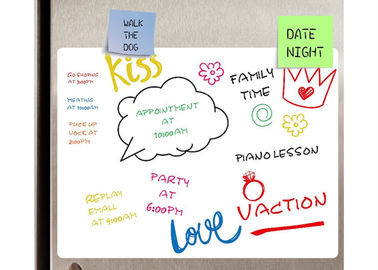 WALK
THE
DOG
DATE
NIGHT
Kiss
GO SHOPING
AT 3:00PM
FAMILY
TIME
MEATING
AT 10:00AM
APPOINTMENT
AT
10:00AM
PICK UP
AT
2:00PM
PIANO LESSON
PARTY
AT
6:00PM
REPLAY
EMALL
AT 9:00AM
Love
VACTION